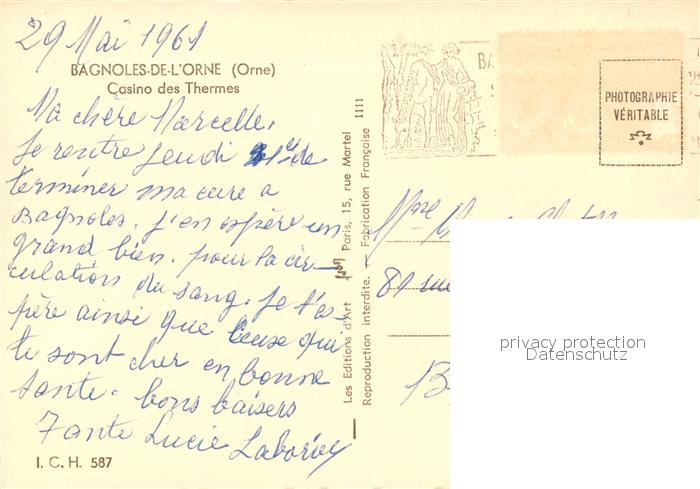 29 Mai 1961
BAGNOLES-DE-L'ORNE (Orne)
Casino des Thermes
Ma chère Marcelle,
Je rentre Jeudi de
terminer ma cure a
Bagnoles. j'en espère un
grand bien. pour la cir-
culation du sang. Je t'es-
père ainsi que ceuse qui
te sont cher en bonne
santé. bons baisers
Tante Lucie
I. C. H. 587
Les Editions d'Art Paris, 15, rue Martel 1111
Reproduction interdite. - Fabrication Française
BA
PHOTOGRAPHIE
VÉRITABLE
Mme
81 rue
B
privacy protection
Datenschutz